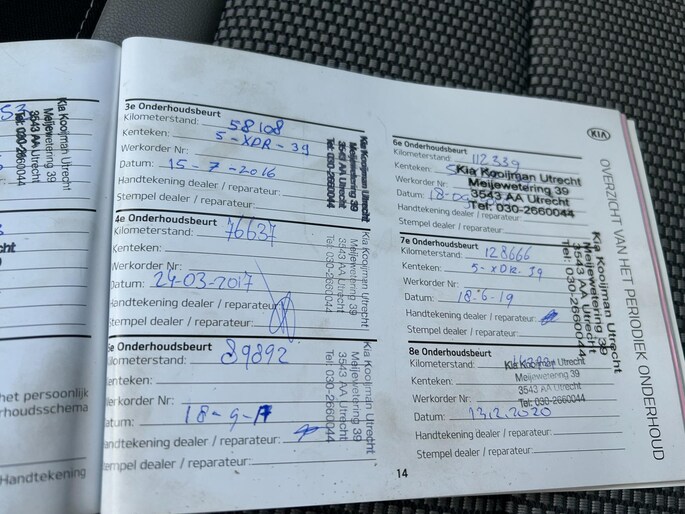 Kia Kooijman Utrecht
Meijewetering 39
3543 AA Utrecht
Tel: 030-2660044
het persoonlijk
Handtekening
3e Onderhoudsbeurt
Kilometerstand: 58108
Kenteken: 5-XDR-39
Werkorder Nr:
Datum: 15-7-2016
Handtekening dealer / reparateur:
Stempel dealer / reparateur:
Kia Kooijman Utrecht
Meijewetering 39
3543 AA Utrecht
Tel: 030-2660044
4e Onderhoudsbeurt
Kilometerstand: 76637
Kenteken:
Werkorder Nr:
Datum: 24-03-2017
Handtekening dealer / reparateur:
Stempel dealer / reparateur:
Kia Kooijman Utrecht
Meijewetering 39
3543 AA Utrecht
Tel: 030-2660044
5e Onderhoudsbeurt
Kilometerstand: 89892
Kenteken:
Werkorder Nr:
Datum: 18-9-17
Handtekening dealer / reparateur:
Stempel dealer / reparateur:
Kia Kooijman Utrecht
Meijewetering 39
3543 AA Utrecht
Tel: 030-2660044
KIA
OVERZICHT VAN HET PERIODIEK ONDERHOUD
6e Onderhoudsbeurt
Kilometerstand: 112339
Kenteken:
Werkorder Nr:
Datum:
Handtekening dealer / reparateur:
Stempel dealer / reparateur:
Kia Kooijman Utrecht
Meijewetering 39
3543 AA Utrecht
Tel: 030-2660044
7e Onderhoudsbeurt
Kilometerstand: 128666
Kenteken: 5-XDR-39
Werkorder Nr:
Datum: 18-6-19
Handtekening dealer / reparateur:
Stempel dealer / reparateur:
Kia Kooijman Utrecht
Meijewetering 39
3543 AA Utrecht
Tel: 030-2660044
8e Onderhoudsbeurt
Kilometerstand:
Kenteken:
Werkorder Nr:
Datum: 13.12.2020
Handtekening dealer / reparateur:
Stempel dealer / reparateur:
Kia Kooijman Utrecht
Meijewetering 39
3543 AA Utrecht
Tel: 030-2660044
14